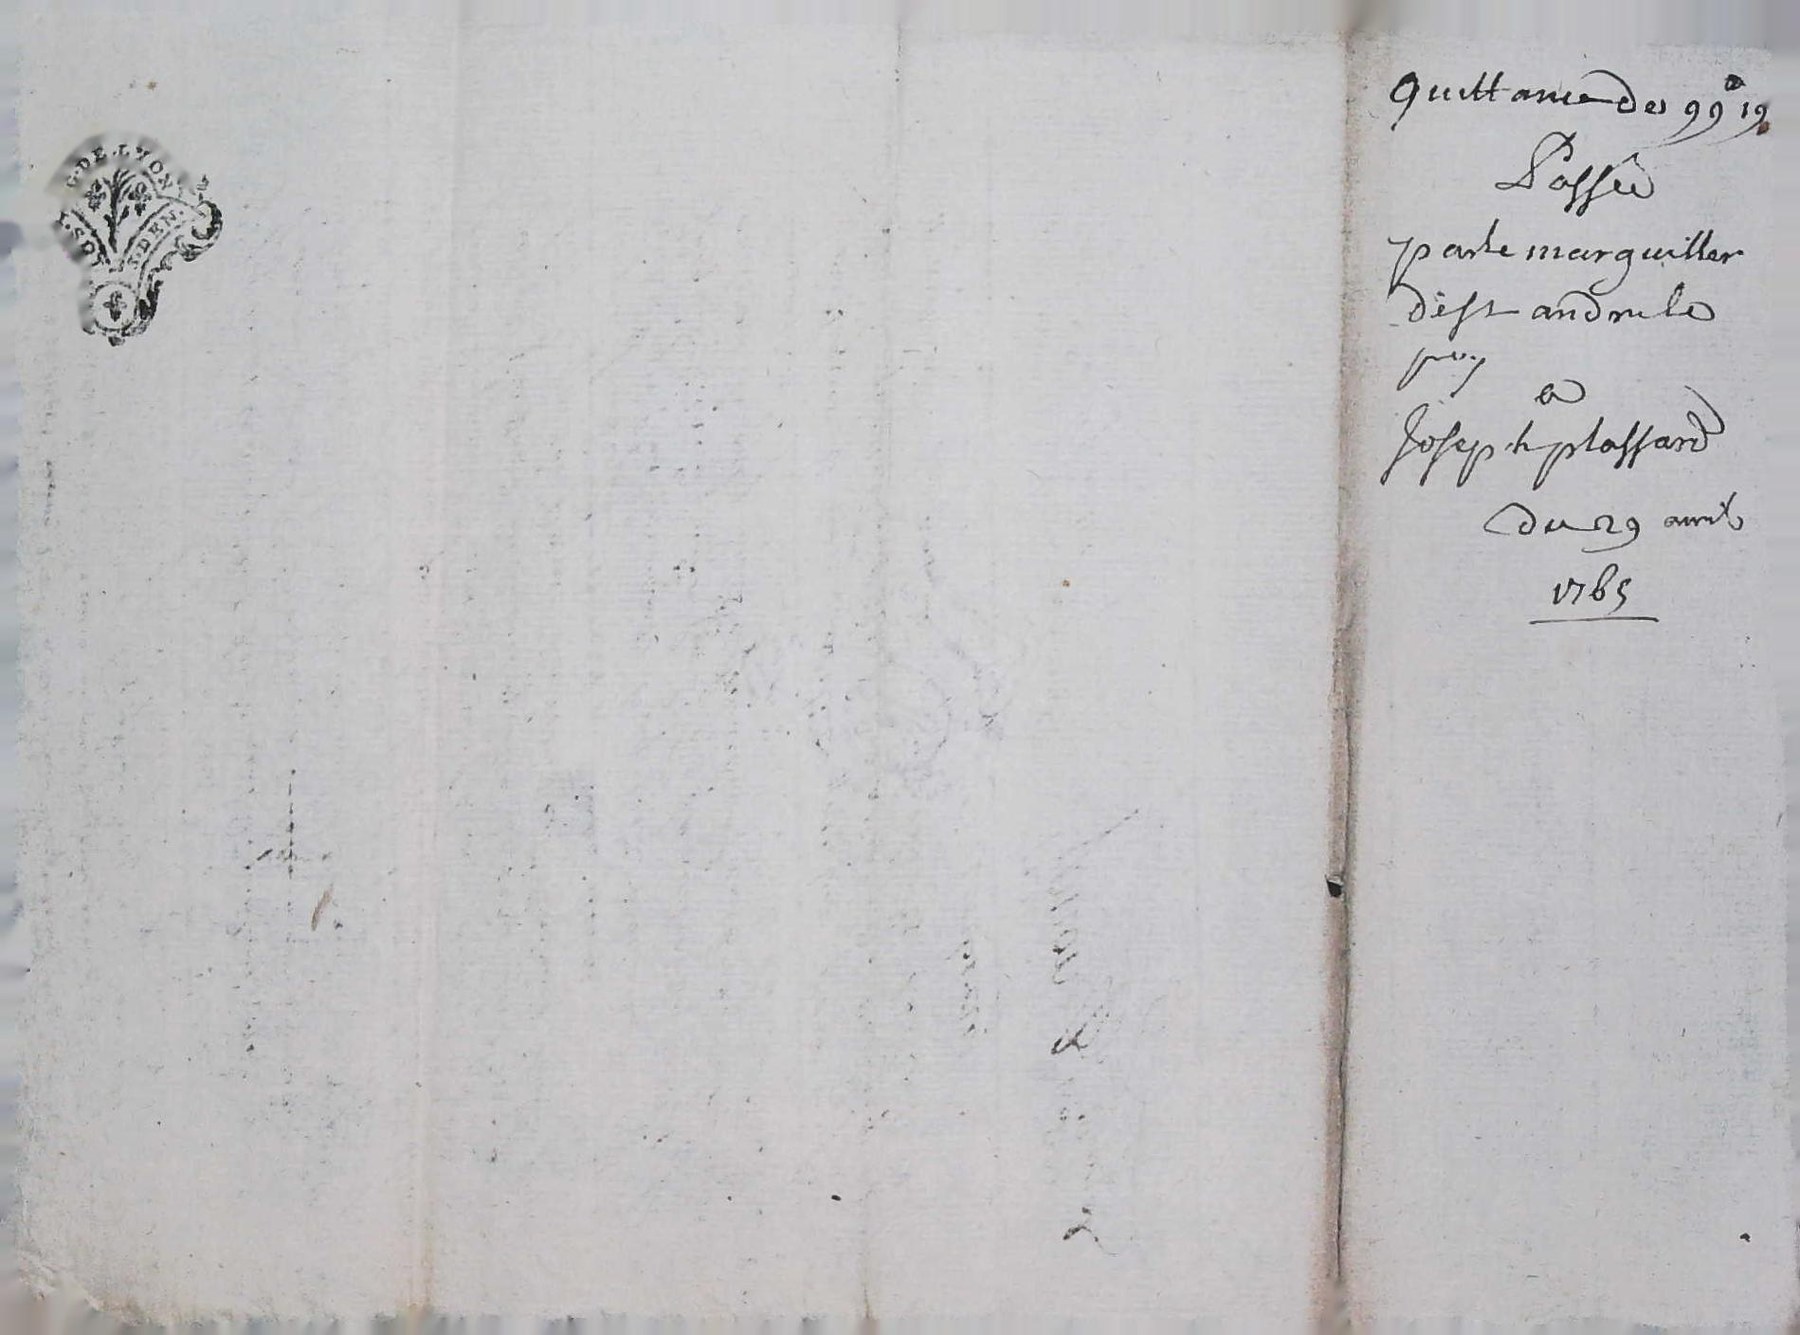 G·DE·LYON
SOLS
DEN.
Quittance des 99ᵗᵗ 19
Passée
par le marguiller
de st andre le
puy
a
Joseph plassard
du 29 avril
1765